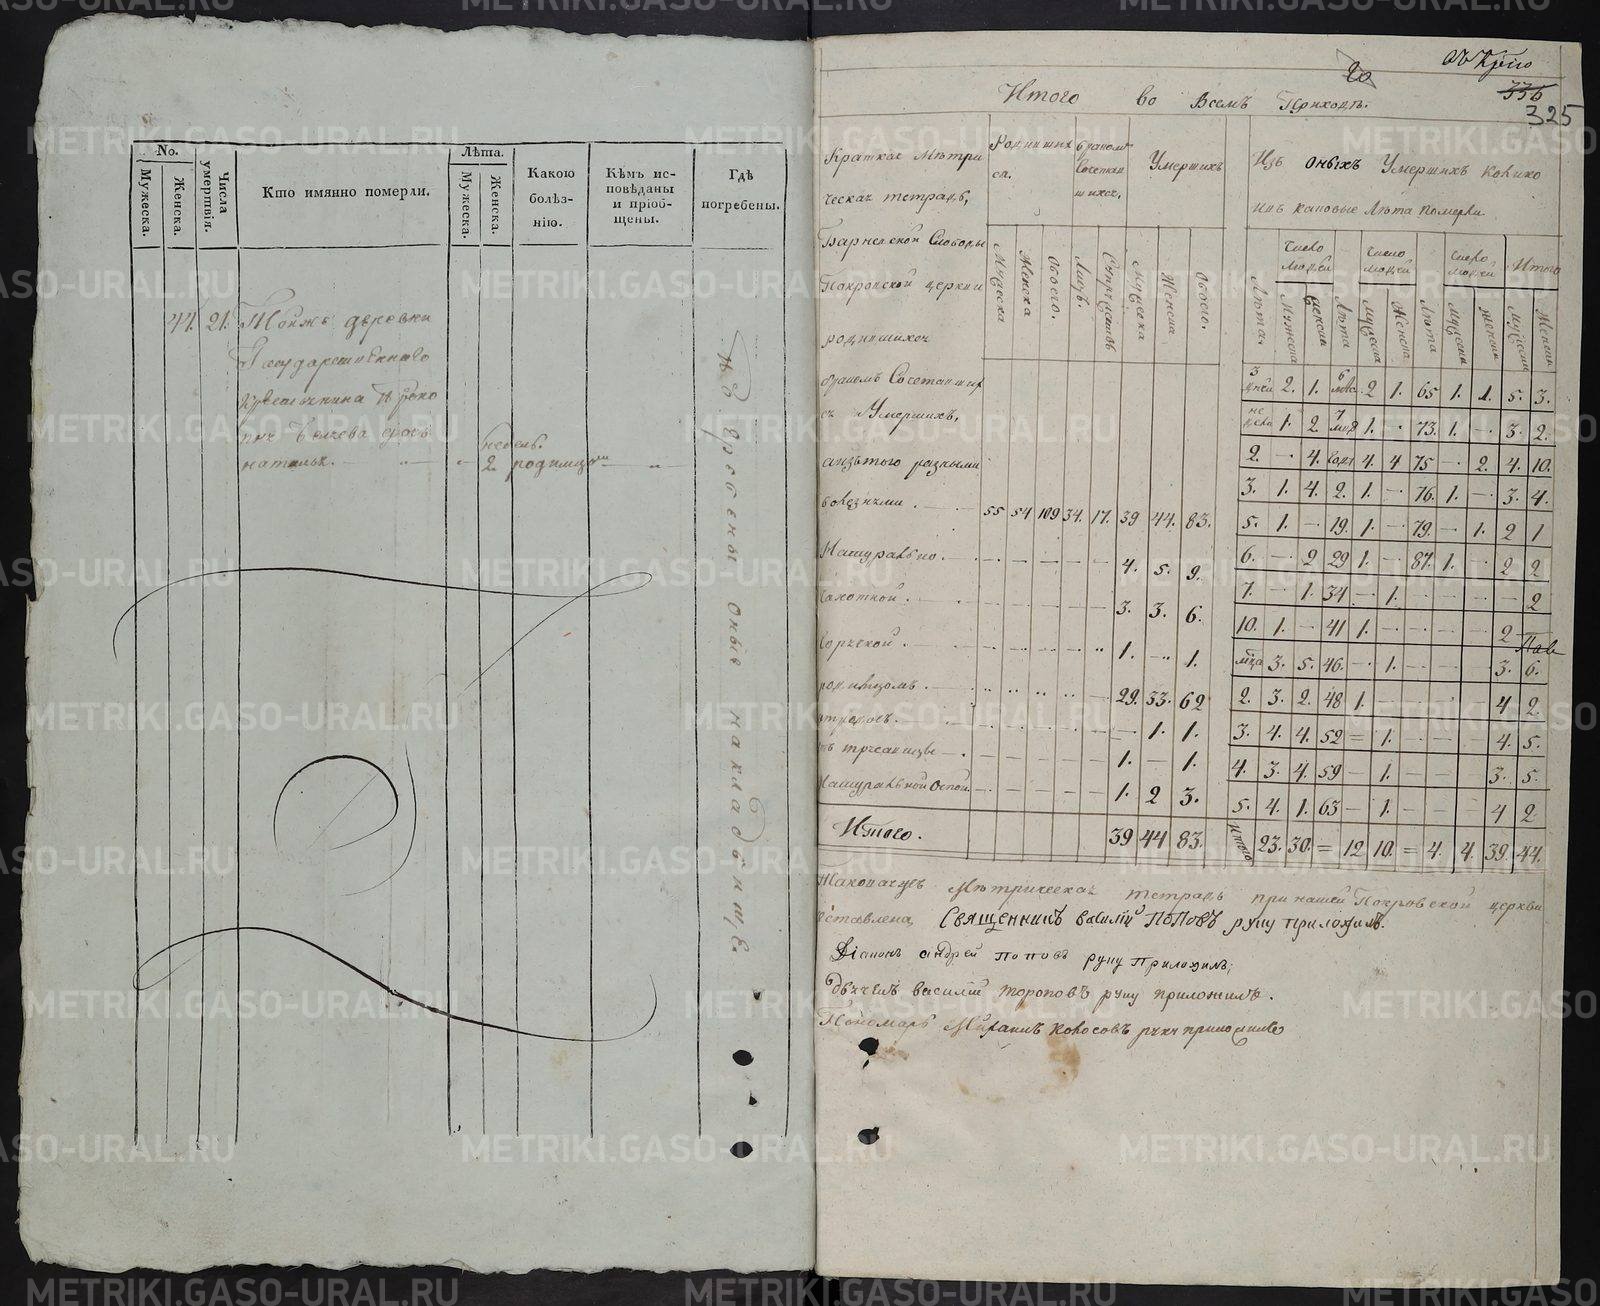 No.
Мужеска.
Женска.
Числа умертвія.
Кто имянно померли.
Лѣта.
Мужеска.
Женска.
Какою болѣз-нію.
Кѣмъ ис-повѣданы и пріоб-щены.
Гдѣ погребены.
44. 21. Той же деревни
Государственного
крестьянина
дочь
недель.
наталья. 2 родимцомъ
погребены оные на кладбище
20
336
325
Итого во всемъ Приходѣ.
Краткая Метри
ческая тетрадь,
Родивших
ся.
бракомъ
Сочетав
шихся,
Умершихъ
Изъ оныхъ Умершихъ колико
ихъ каковые Лѣта померли
Барневской Слободы
Покровской церкви
родившихся
бракомъ Сочетавших
ся Умершихъ,
разными
болезнями 55 54 109 34. 17. 39 44. 83.
Мужеска Женска Обоего. Лицъ. Супружествъ Мужеска Женска Обоего.
Натурально 4. 5. 9.
Чахоткой 3. 3. 6.
Горячкой 1. 1.
родимцомъ 29. 33. 62
1. 1.
1. — 1.
Натуральной Оспой 1. 2 3.
Итого. 39 44 83.
Число людей Число людей Число людей Итого
Лѣта. Мужеска Женска Лѣта Мужеска Женска Лѣта Мужеска Женска Мужеска Женска
3 дней 2. 1. 6 2 1. 65 1. 1. 5. 3.
1. 2 7 1. - 73. 1. - 3. 2.
2. - 4. 4. 4 75 - 2. 4. 10.
3. 1. 4. 2. 1. - 76. 1. - 3. 4.
5. 1. - 19. 1. - 79. - 1. 2 1
6. - 2 29 1. - 87. 1. - 2 2
7. - 1. 34 - 1. - - - - 2
10. 1. - 41 1. - - - - 2
3. 5. 46. - 1. - - - 3. 6.
2. 3. 2. 48 1. - - - - 4 2.
3. 4. 4. 52 = 1. - - - 4. 5.
4. 3. 4. 59 - 1. - - - 3. 5.
5. 4. 1. 63 - 1. - - - 4 2
Итого 23. 30. = 12 10. = 4. 4. 39. 44.
Таковаяжъ Метрическая тетрадь при нашей Покровской церкви
оставлена, Священникъ василій Поповъ руку приложилъ.
Діаконъ андрей поповъ руку Приложилъ;
Дьячекъ василій тороповъ руку приложилъ.
Пономарь Михаилъ Колосовъ руку приложилъ
METRIKI.GASO-URAL.RU